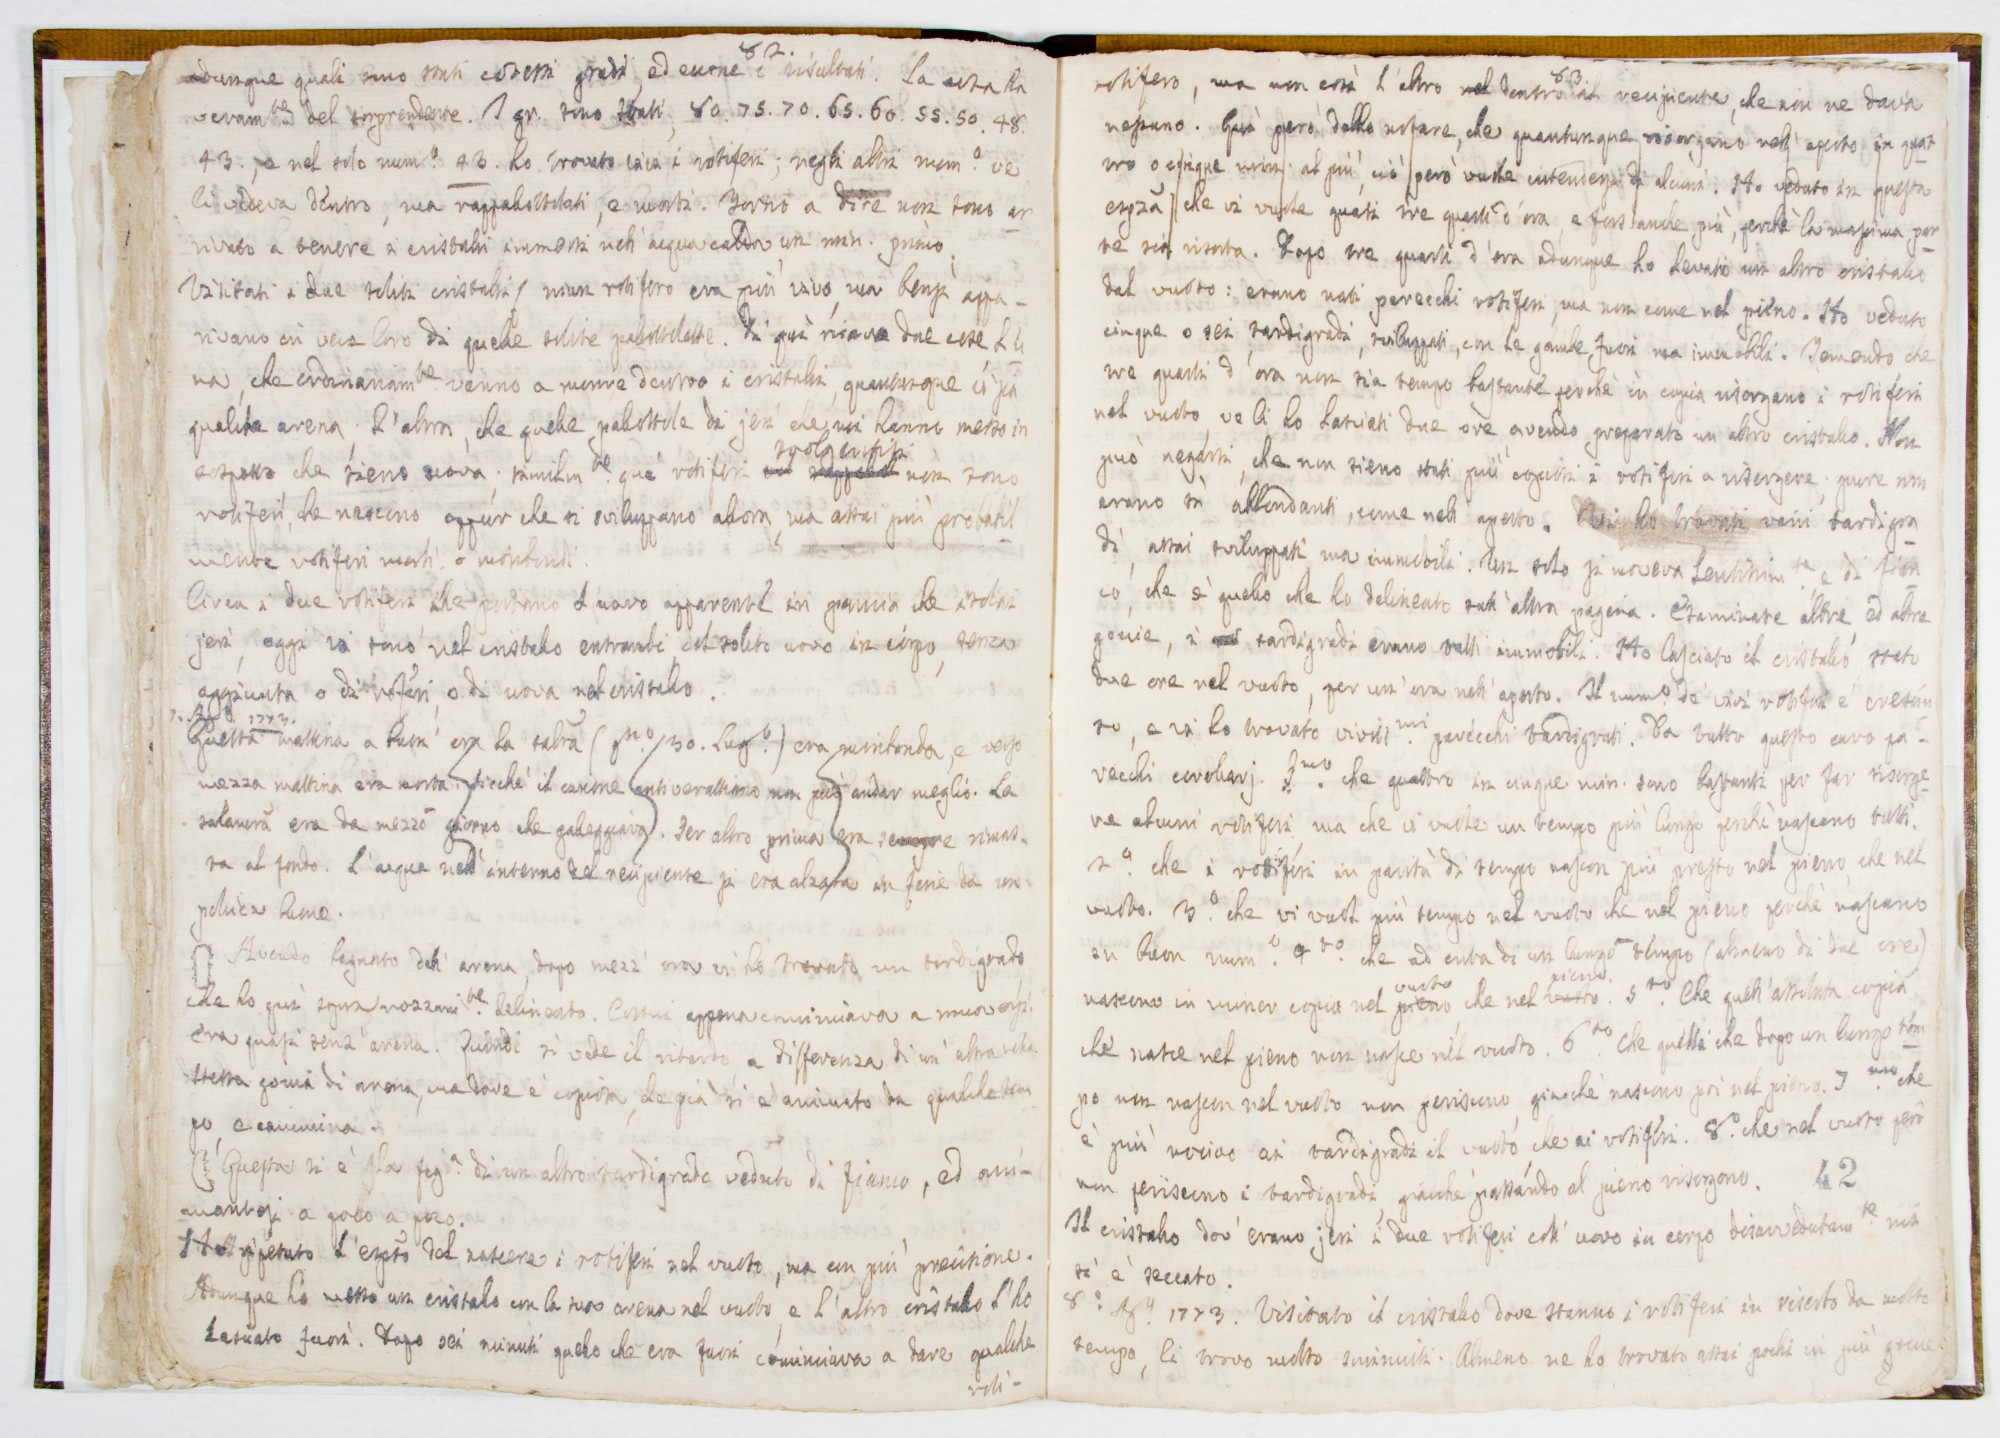 82.
adunque quali sono stati codesti gradi, ed eccone i risultati. La cosa ha
veram.te del sorprendente. I gr. sono stati, 80. 75. 70. 65. 60. 55. 50. 48.
43., e nel solo num.o 43. ho trovato vivi i rotiferi; negli altri num.o ve
li vedeva dentro, ma rappallottolati, e morti. Torno a dire non sono ar-
rivato a tenere i cristalli immersi nell'acqua calda un min. primo.
Visitati i due soliti cristalli, niun rotifero era più vivo, ma bensì appa-
rivano in vece loro di quelle solite pallottolette. Di quì ricavo due cose L'u
na, che ordinariam.te vanno a morire dentro i cristalli, quantunque ci sia
qualche arena. L'altra, che quelle pallottole di jeri che mi hanno messo in
sospetto che sieno uova, similm.te que' rotiferi svolgentisi non sono
rotiferi, che nascono oppur che si sviluppano allora, ma assai più probabil
mente rotiferi morti o moribondi.
Circa i due rotiferi che portano l'uovo apparente in pancia che isolai
jeri, oggi vi sono nel cristallo entrambi col solito uovo in corpo, senza
aggiunta o di rotiferi, o di uova nel cristallo.
7. Ag.o 1773.
Questa mattina a buon' ora la salam.a ( 30. Lug.o) era moribonda, e verso
mezza mattina era morta. Sicchè il carione antiveratiano non può andar meglio. La
salam.a era da mezzo giorno che galleggiava. Per altro prima era sempre rimas-
ta al fondo. L'acqua nell'interno del recipiente si era alzata in fine da un
pollice buono.
Avendo bagnato dell'arena, dopo mezz' ora vi ho trovato un tardigrado
che ho quì sopra rozzam.te delineato. Costui appena cominciava a muoversi.
Era quasi senz' arena. Quindi si vede il ritardo, a differenza di un' altra nella
stessa goccia di arena, ma dove è copiosa, che già si è avvivato da qualche tem
po, e cammina.
Questa si è la fig.a di un altro tardigrado veduto di fianco, ed ani-
mantesi a poco a poco.
Ho ripetuto l'esp.to del nascere i rotiferi nel vuoto, ma con più precisione.
Adunque ho messo un cristallo con la sua arena nel vuoto, e l'altro cristallo l'ho
lasciato fuori. Dopo sei minuti quello che era fuori cominciava a dare qualche
roti-
83
rotifero, ma non così l'altro nel dentro al recipiente, che non ne dava
nessuno. Quì però debbo notare, che quantunque risorgano nell'aperto in quat
tro o cinque min. al più, ciò però vuolsi intendersi di alcuni. Ho veduto in questa
esp.za che vi vuole quasi tre quarti d'ora, e fors'anche più, perchè la massima par-
te sia risorta. Dopo tre quarti d'ora adunque ho levato un altro cristallo
dal vuoto: erano nati parecchi rotiferi, ma non come nel pieno. Ho veduto
cinque o sei tardigradi, sviluppati, con le gambe fuori ma immobili. Temendo che
tre quarti d'ora non sia tempo bastante perchè in copia risorgano i rotiferi
nel vuoto, ve li ho lasciati due ore avendo preparato un altro cristallo. Non
può negarsi, che non sieno stati più copiosi i rotiferi a risorgere; pure non
erano sì abbondanti, come nell'aperto. Vi ho trovati varii tardigra
di, assai sviluppati ma immobili. Un solo si moveva lentissim.te e di fian
co, che è quello che ho delineato sull'altra pagina. Esaminate altre ed altre
goccie, i tardigradi erano tutti immobili. Ho lasciato il cristallo, stato
due ore nel vuoto, per un' ora nell'aperto. Il num.o de' vivi rotiferi è cresciu
to, e vi ho trovato viviss.mi parecchi tardigradi. Da tutto questo cavo pa-
recchi corollarj. P.mo che quattro in cinque min. sono bastanti per far risorge
re alcuni rotiferi, ma che vi vuole un tempo più lungo perchè nascano tutti.
2.o che i rotiferi in parità di tempo nascon più presto nel pieno, che nel
vuoto. 3.o che vi vuol più tempo nel vuoto che nel pieno perchè nascano
in buon num.o. 4.to che ad onta di un lungo tempo (almeno di due ore)
nascono in minor copia nel pieno vuoto che nel vuoto pieno. 5.to Che quell'assoluta copia
che nasce nel pieno non nasce nel vuoto. 6.to Che quelli che dopo un lungo tem
po non nascon nel vuoto non periscono, giacchè nascono poi nel pieno. 7.mo che
è più nocivo ai tardigradi il vuoto che ai rotiferi. 8.o che nel vuoto però
non periscono i tardigradi, giacchè passando al pieno risorgono.
42
Il cristallo dov' erano jeri i due rotiferi coll' uovo in corpo disavvedutam.te mi
si è seccato.
8.o Ag.o 1773. Visitato il cristallo dove stanno i rotiferi in riserbo da molto
tempo, li trovo molto sminuiti. Almeno ne ho trovato assai pochi in più goccie.